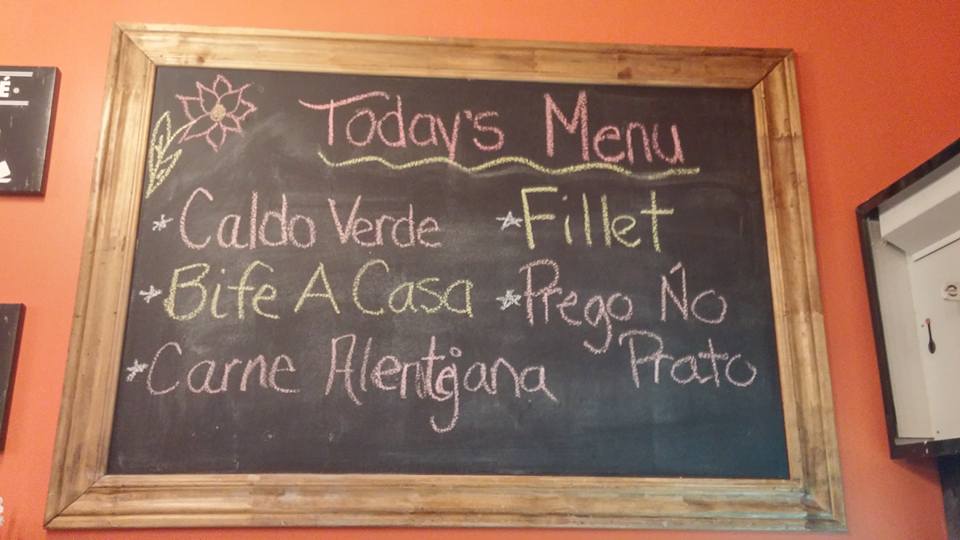 Today's Menu
* Caldo Verde
* Bife A Casa
* Carne Alentejana
* Fillet
* Prego Ńo
Prato
É.